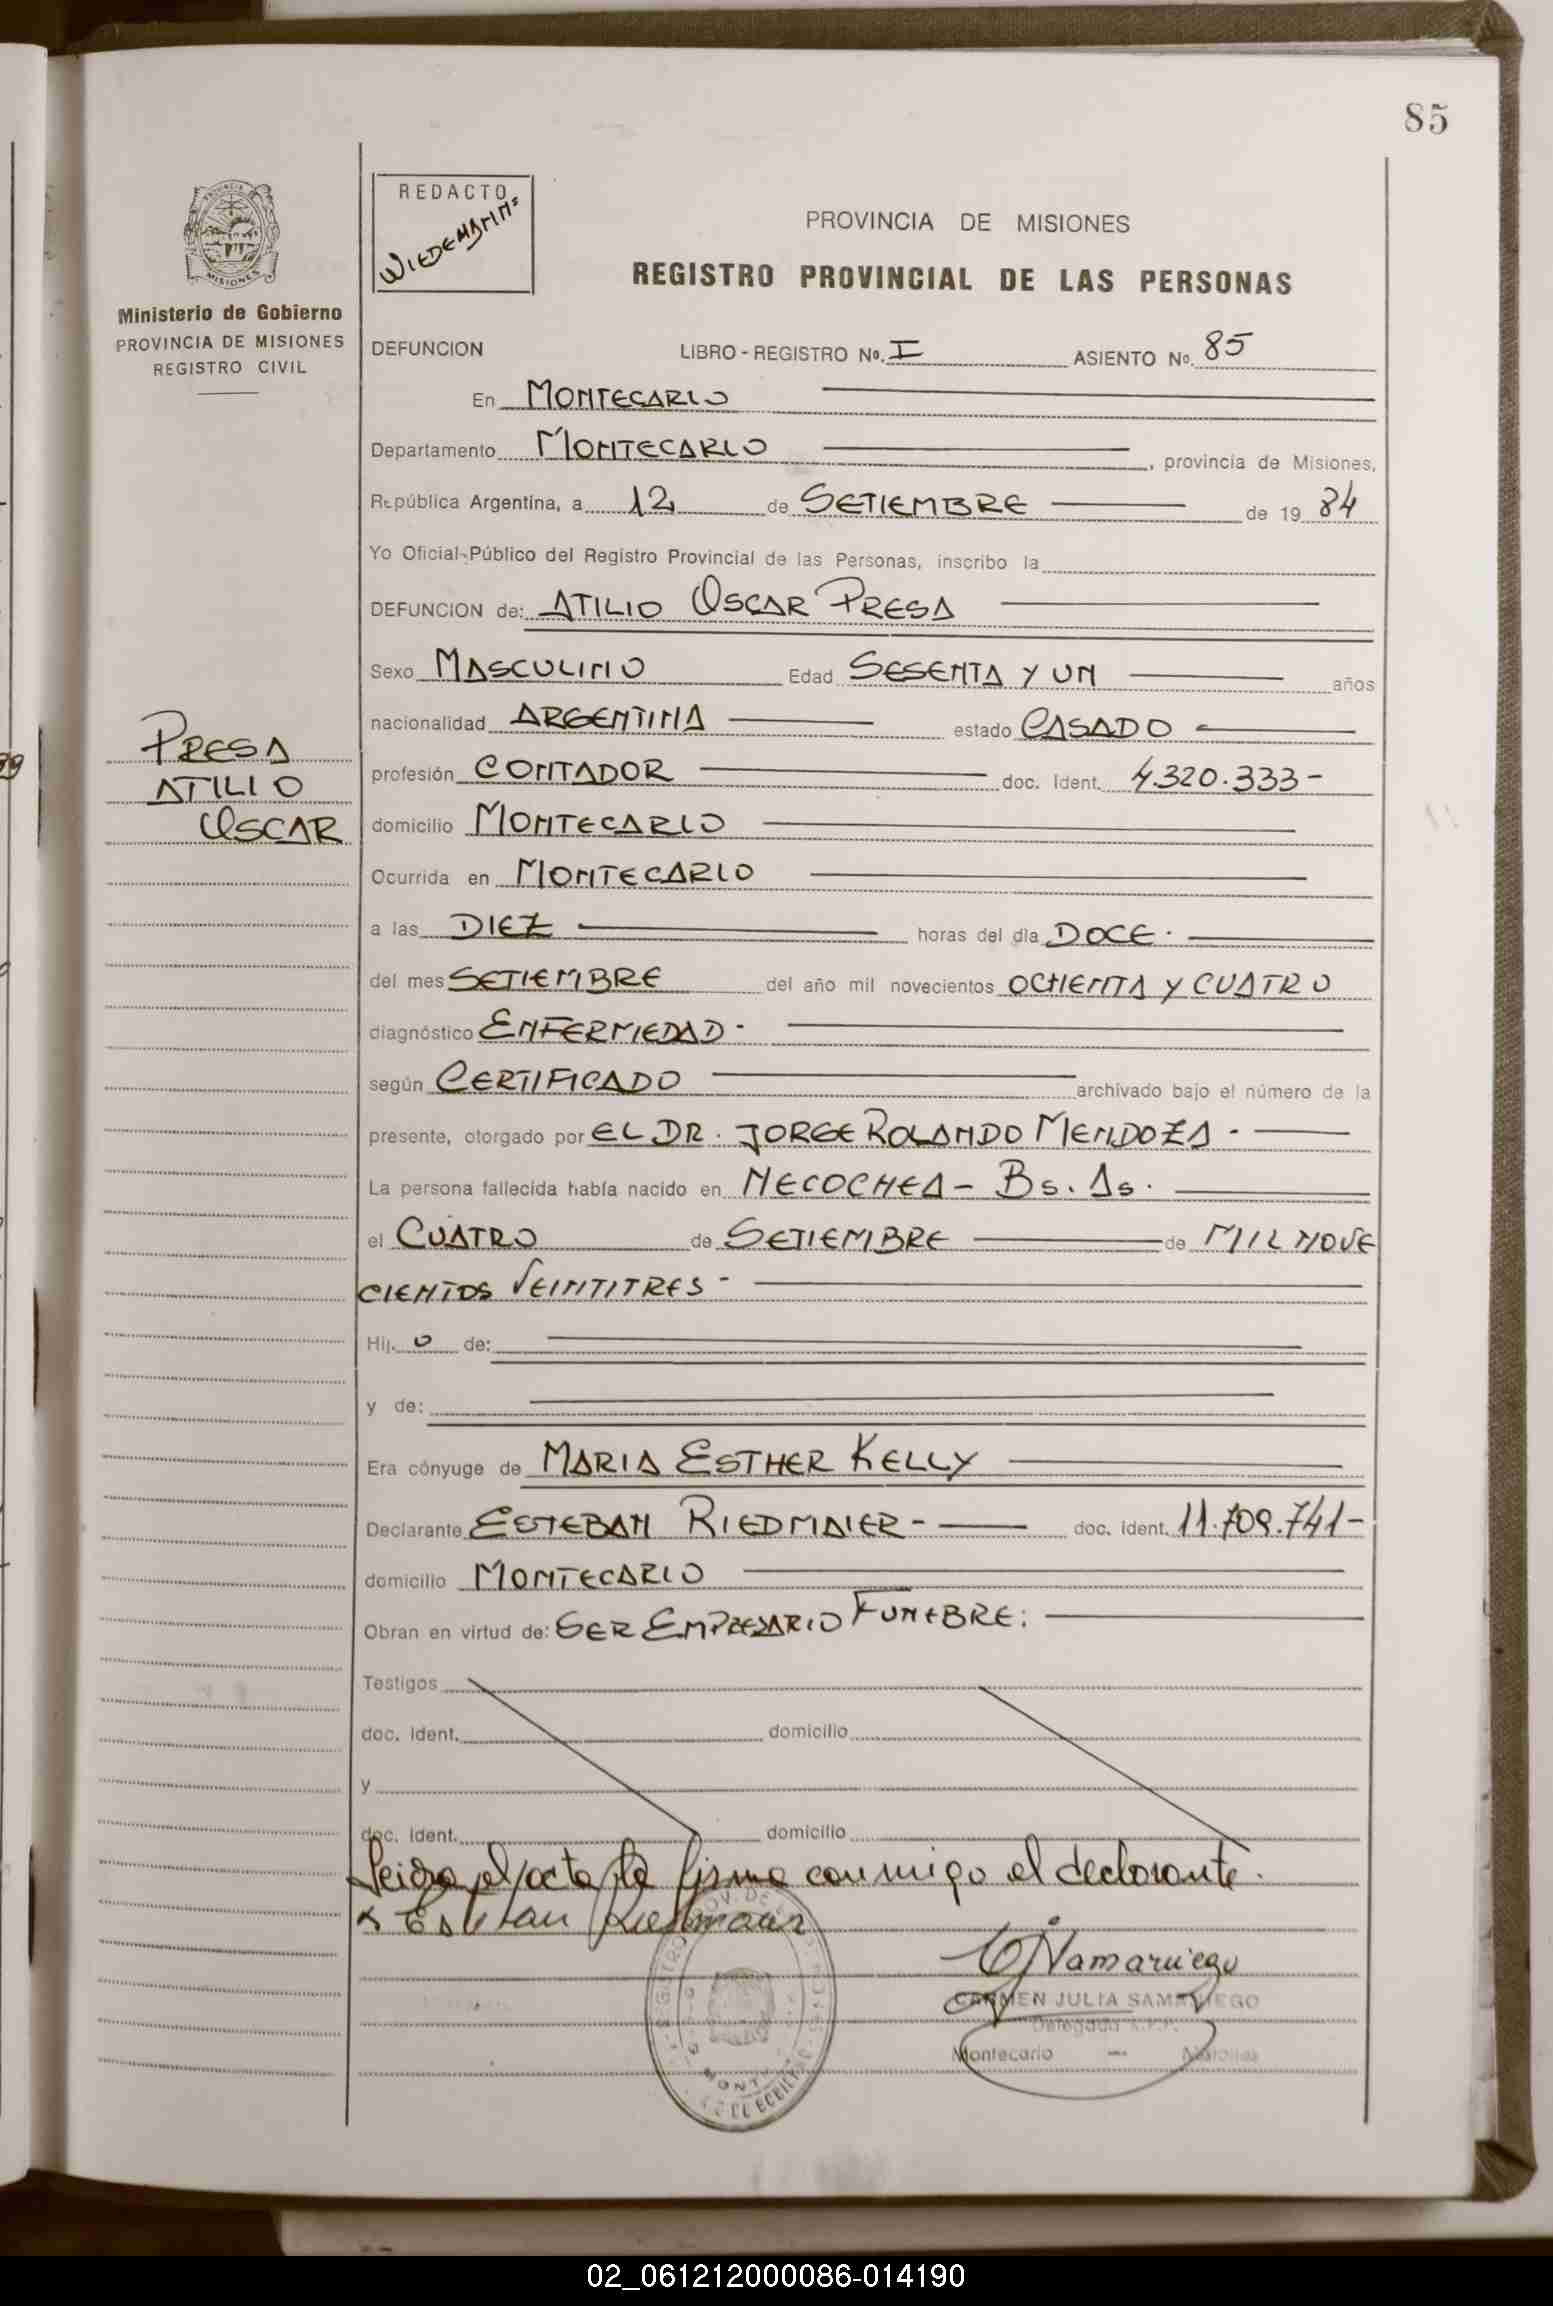 85
REDACTO
WIEDEMANN
PROVINCIA DE MISIONES
REGISTRO PROVINCIAL DE LAS PERSONAS
MISIONES
Ministerio de Gobierno
PROVINCIA DE MISIONES
REGISTRO CIVIL
PRESA
ATILIO
OSCAR
DEFUNCION LIBRO - REGISTRO Nº. I ASIENTO Nº. 85
En MONTECARLO
Departamento MONTECARLO , provincia de Misiones,
República Argentina, a 12 de SETIEMBRE de 19 84
Yo Oficial Público del Registro Provincial de las Personas, inscribo la
DEFUNCION de: ATILIO OSCAR PRESA
Sexo MASCULINO Edad SESENTA Y UN años
nacionalidad ARGENTINA estado CASADO
profesión CONTADOR doc. Ident. 4.320.333-
domicilio MONTECARLO
Ocurrida en MONTECARLO
a las DIEZ horas del día DOCE.
del mes SETIEMBRE del año mil novecientos OCHENTA Y CUATRO
diagnóstico ENFERMEDAD-
según CERTIFICADO archivado bajo el número de la
presente, otorgado por EL DR. JORGE ROLANDO MENDOZA-
La persona fallecida había nacido en NECOCHEA- Bs. As.
el CUATRO de SETIEMBRE de MIL NOVE
CIENTOS VEINTITRES-
Hij. o de:
y de:
Era cónyuge de MARIA ESTHER KELLY
Declarante ESTEBAN RIEDMAIER- doc. ident. 11.709.741-
domicilio MONTECARLO
Obran en virtud de: SER EMPRESARIO FUNEBRE:
Testigos
doc. ident. domicilio
y
doc. ident. domicilio
Leida el acta la firma conmigo el declarante.
Esteban Riedmaier
CJSamaniego
CARMEN JULIA SAMANIEGO
Delegada R.P.P.
Montecarlo — Misiones
02_061212000086-014190